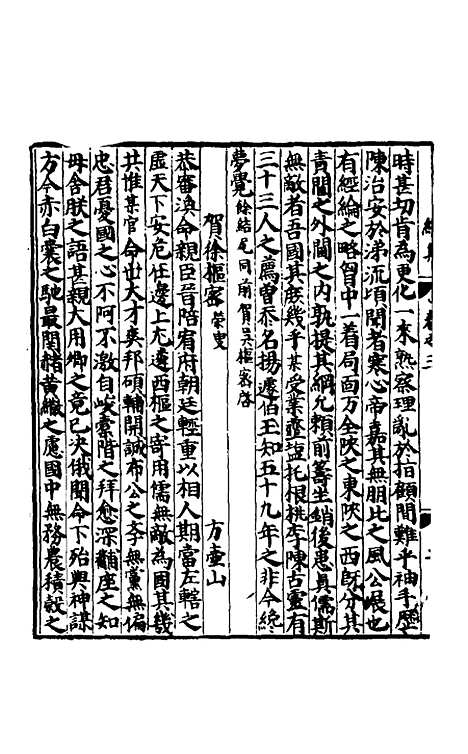 時甚切肯為更化一來熟察理亂於指顧間難乎袖手歷
陳治安於涕流頃聞者寒心帝嘉其無朋比之風公展也
有經綸之略胷中一着局面万全陜之東陜之西既分其
責閫之外閫之内孰提其綱允賴前籌坐銷後患真儒斯
無敵者吾國其庶幾乎某受業𨫼塩托根桃李陳古靈有
三十三人之薦曽忝名揚蘧伯玉知五十九年之非今終
夢覺餘結尾同前賀吳樞密啓
賀徐樞密榮叟　方壷山
恭審渙命親臣晉陪宥府朝廷輕重以相人期當左轄之
虚天下安危在邊上尢遴西樞之寄用儒無敵為國其幾
共惟某官命世大才矣邦碩輔開誠布公之季無黨無偏
忠君憂國之心不阿不激自峻雲階之拜愈深黼座之知
毋舍朕之語甚親大用卿之意已决俄聞命下殆與神謀
方今赤白囊之馳最関緒黄緻之慮國中無務農積穀之